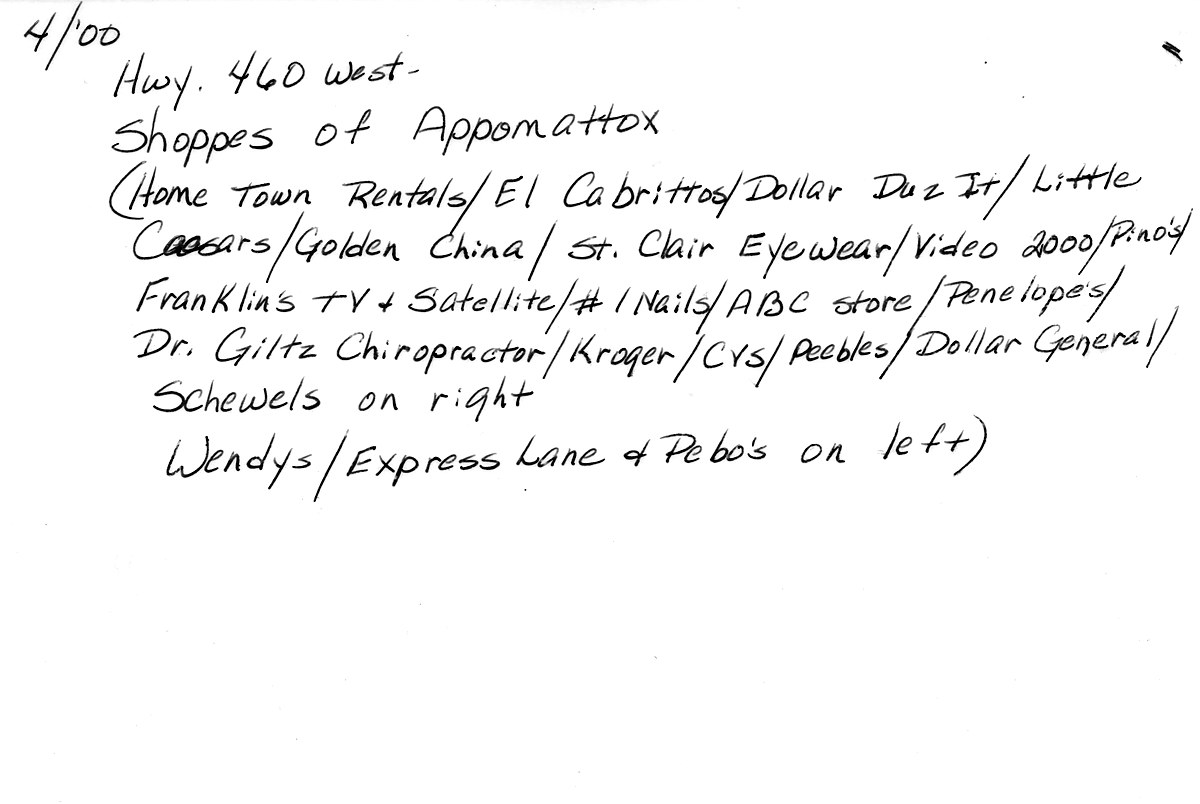 4/'00
Hwy. 460 West-
Shoppes of Appomattox
(Home Town Rentals/El Cabrittos/Dollar Duz It/Little
Caesars/Golden China/St. Clair Eyewear/Video 2000/Pino's/
Franklin's TV & Satellite/#1 Nails/ABC store/Penelope's/
Dr. Giltz Chiropractor/Kroger/CVS/Peebles/Dollar General/
Schewels on right
Wendys/Express Lane & Pebo's on left)